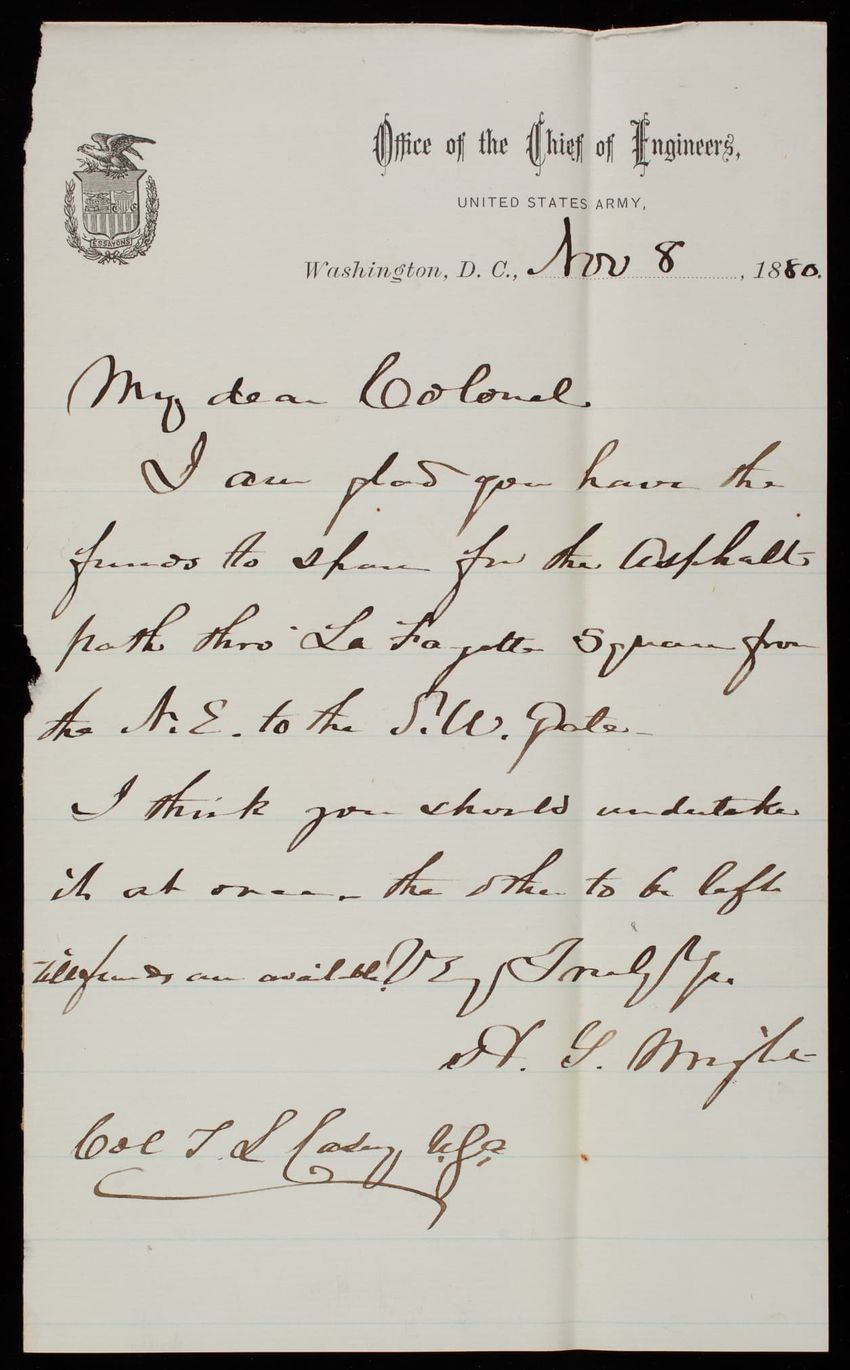 Office of the Chief of Engineers,
UNITED STATES ARMY,
ESSAYONS
Washington, D. C., Nov 8, 1880.
My dear Colonel
I am glad you have the
funds to spare for the Asphalt
path thro' La Fayette Square from
the N.E. to the S.W. Gate -
I think you should undertake
it at once - the other to be left
till funds are available. Very Truly Yrs.
H. G. Wright
Col T. L Casey